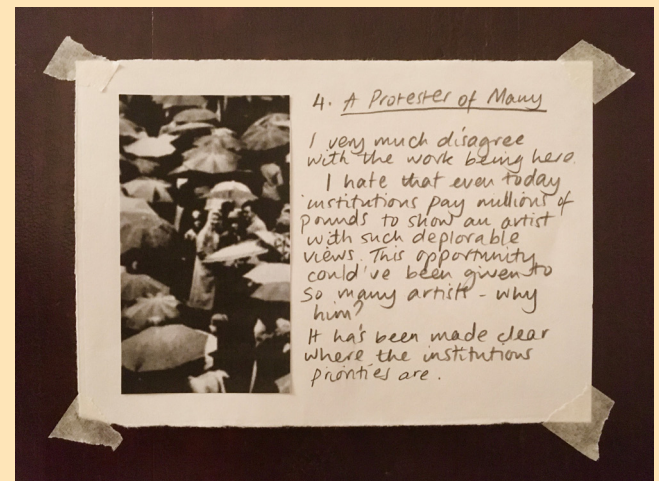 4. A Protester of Many
I very much disagree
with the work being here.
I hate that even today
institutions pay millions of
pounds to show an artist
with such deplorable
views. This opportunity
could've been given to
so many artists - why
him?
It has been made clear
where the institutions
priorities are.